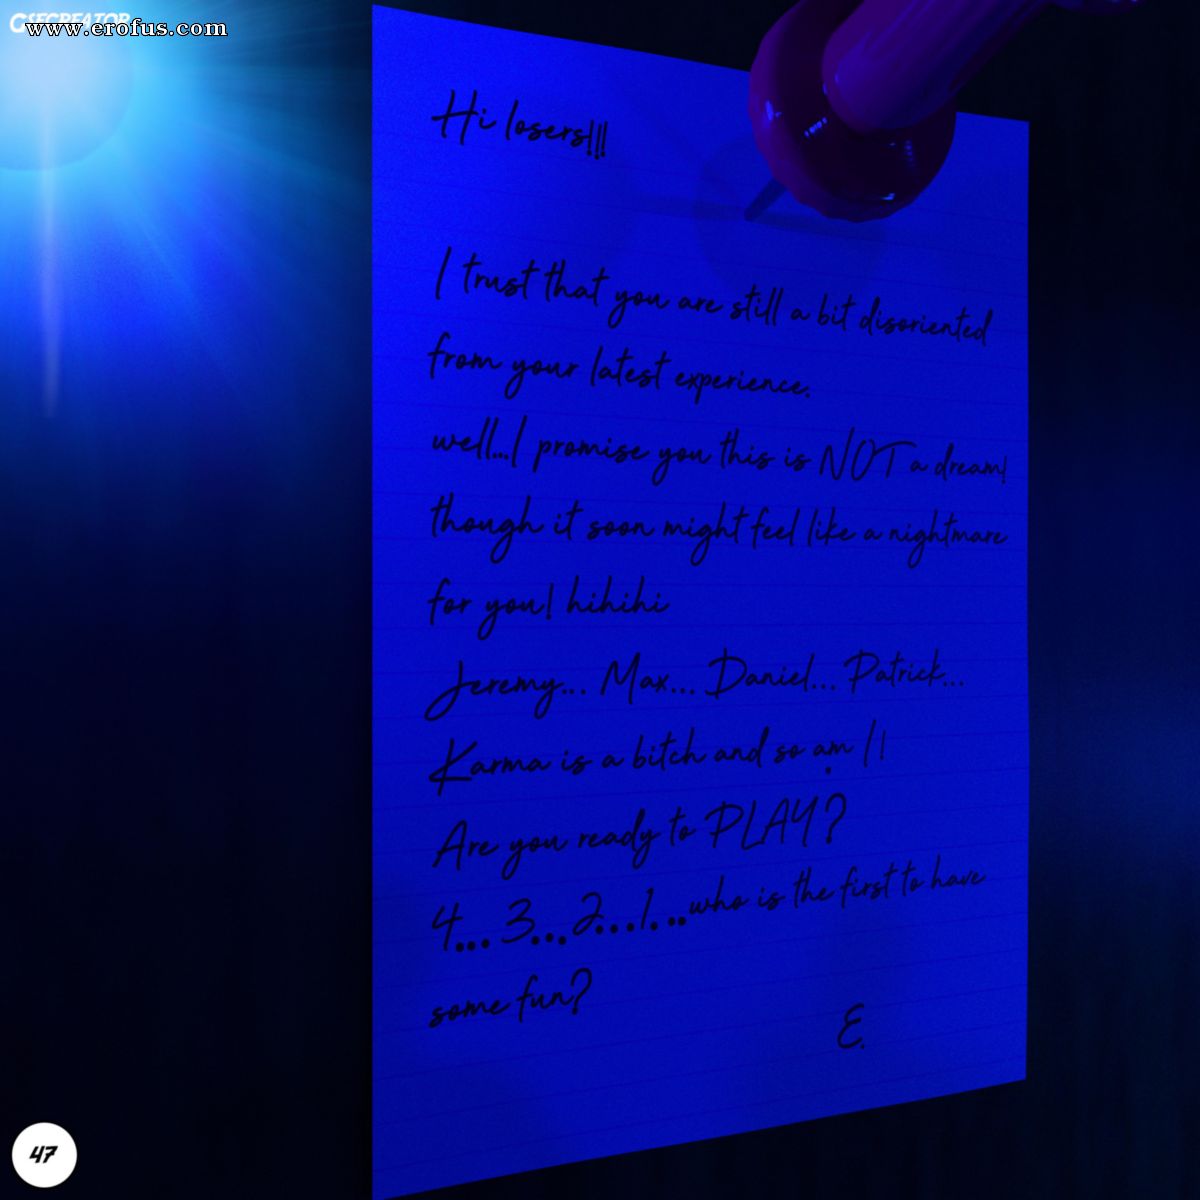 GSFCREATOR
www.erofus.com
Hi losers!!!
I trust that you are still a bit disoriented
from your latest experience.
well...I promise you this is NOT a dream!
though it soon might feel like a nightmare
for you! hihihi
Jeremy... Max... Daniel... Patrick...
Karma is a bitch and so am I!
Are you ready to PLAY?
4... 3...2...1...who is the first to have
some fun?
E.
47